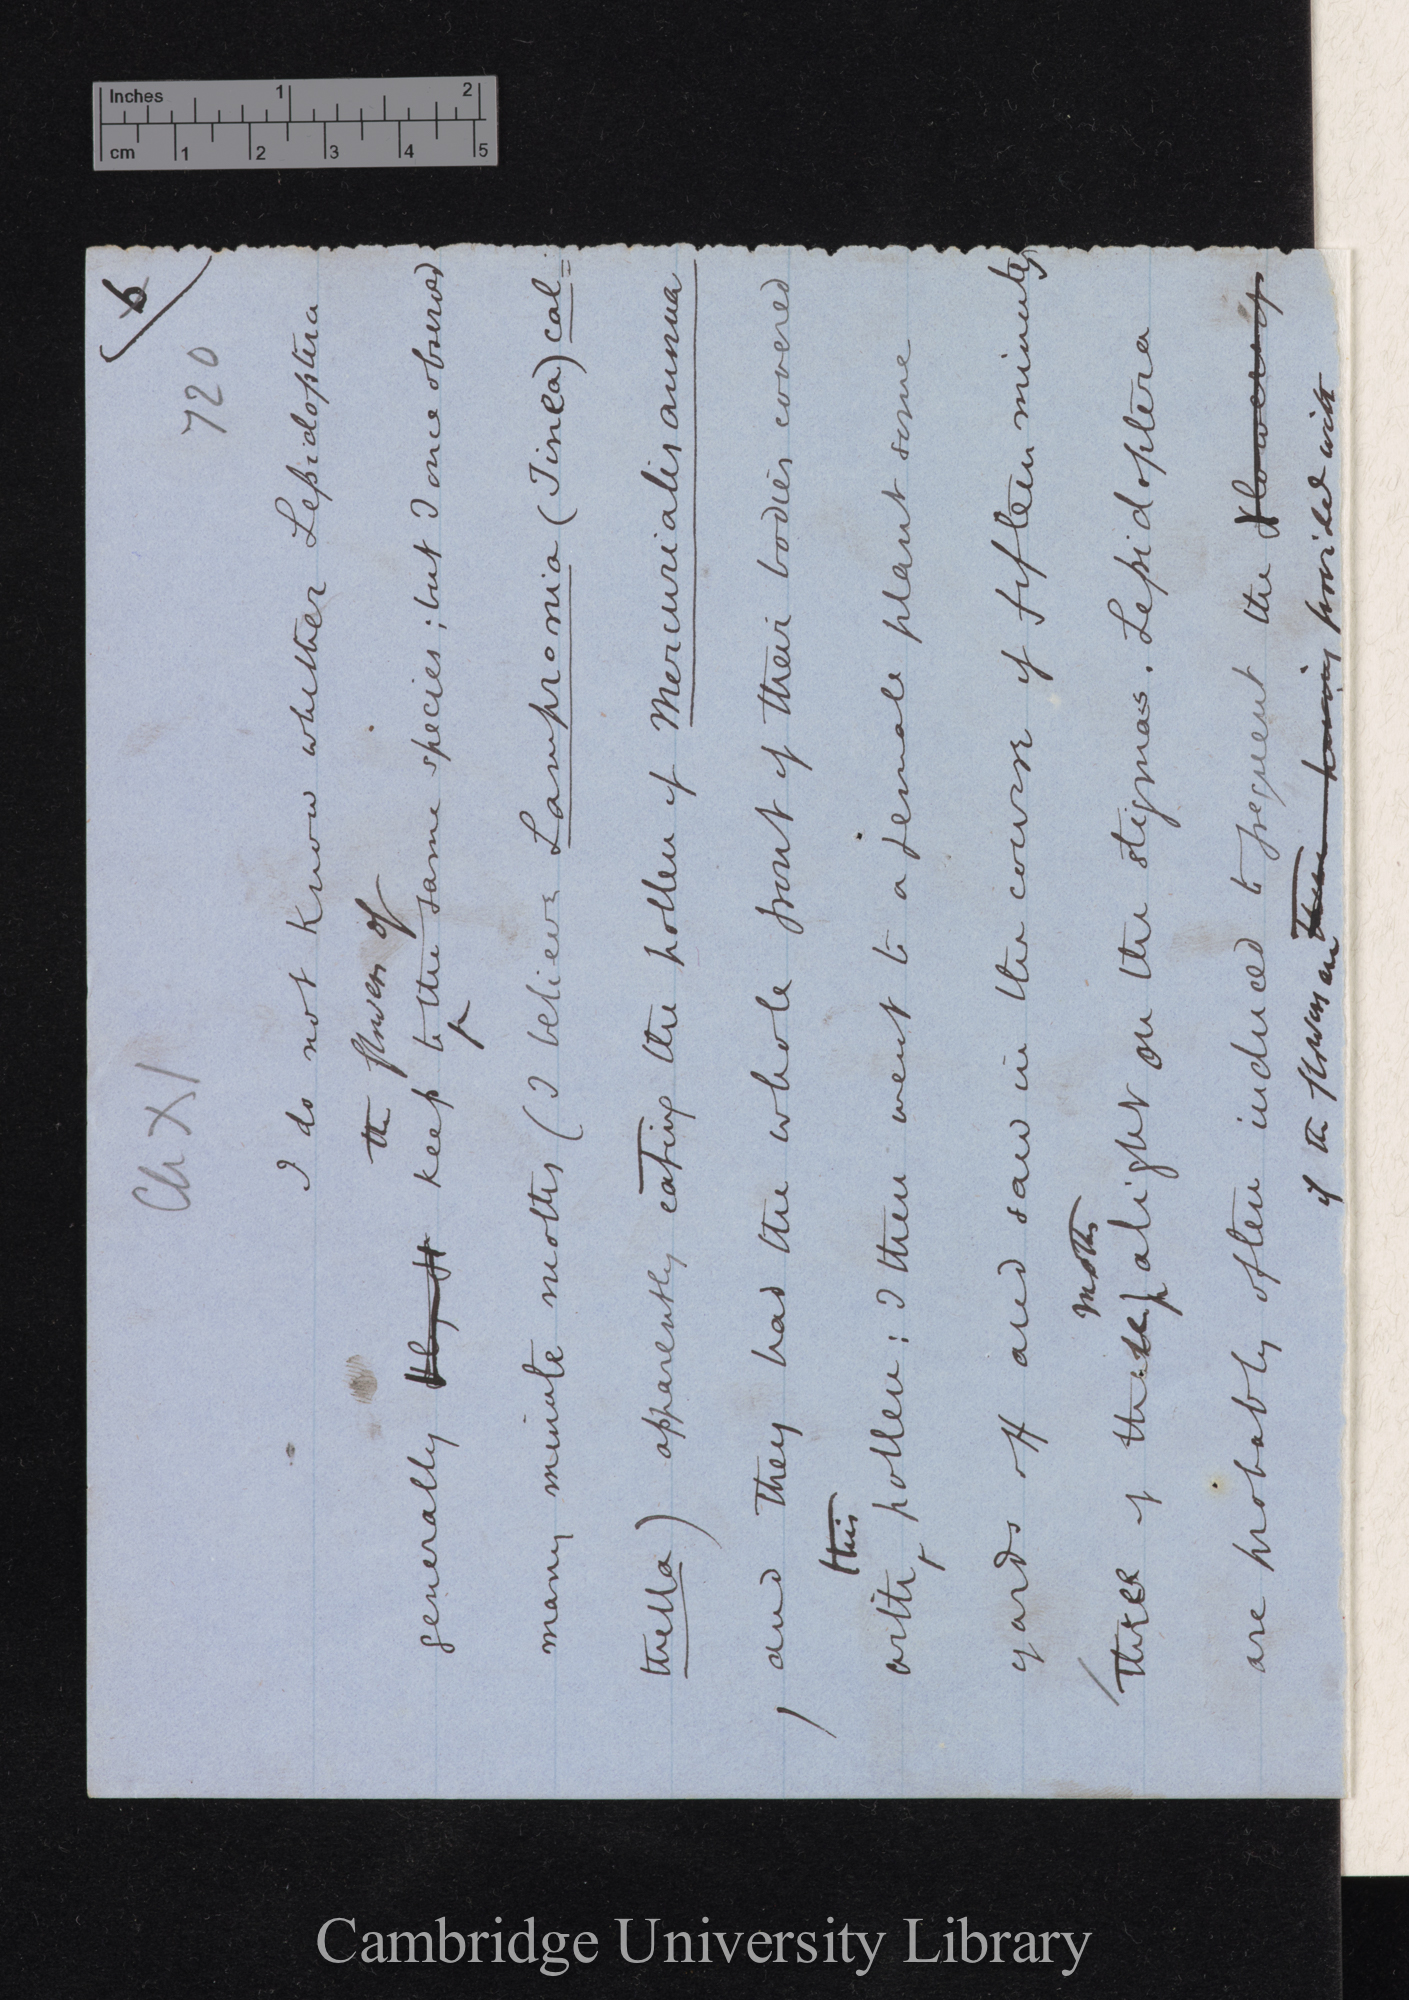 Inches 1 2
cm 1 2 3 4 5
6
720
Ch XI
I do not know whether Lepidoptera
the flowers of
generally keep to the same species; but I once observed
many minute moths (I believe Lampronia (Tinea) cal=
thella) apparently eating the pollen of Mercurialis annua
and they had the whole front of their bodies covered
this
with pollen; I then went to a female plant some
yards off and saw in the course of fifteen minutes
moths
three of these alight on the stigmas. Lepidoptera
are probably often induced to frequent the flowers of
if the flowers are these having provided with
Cambridge University Library